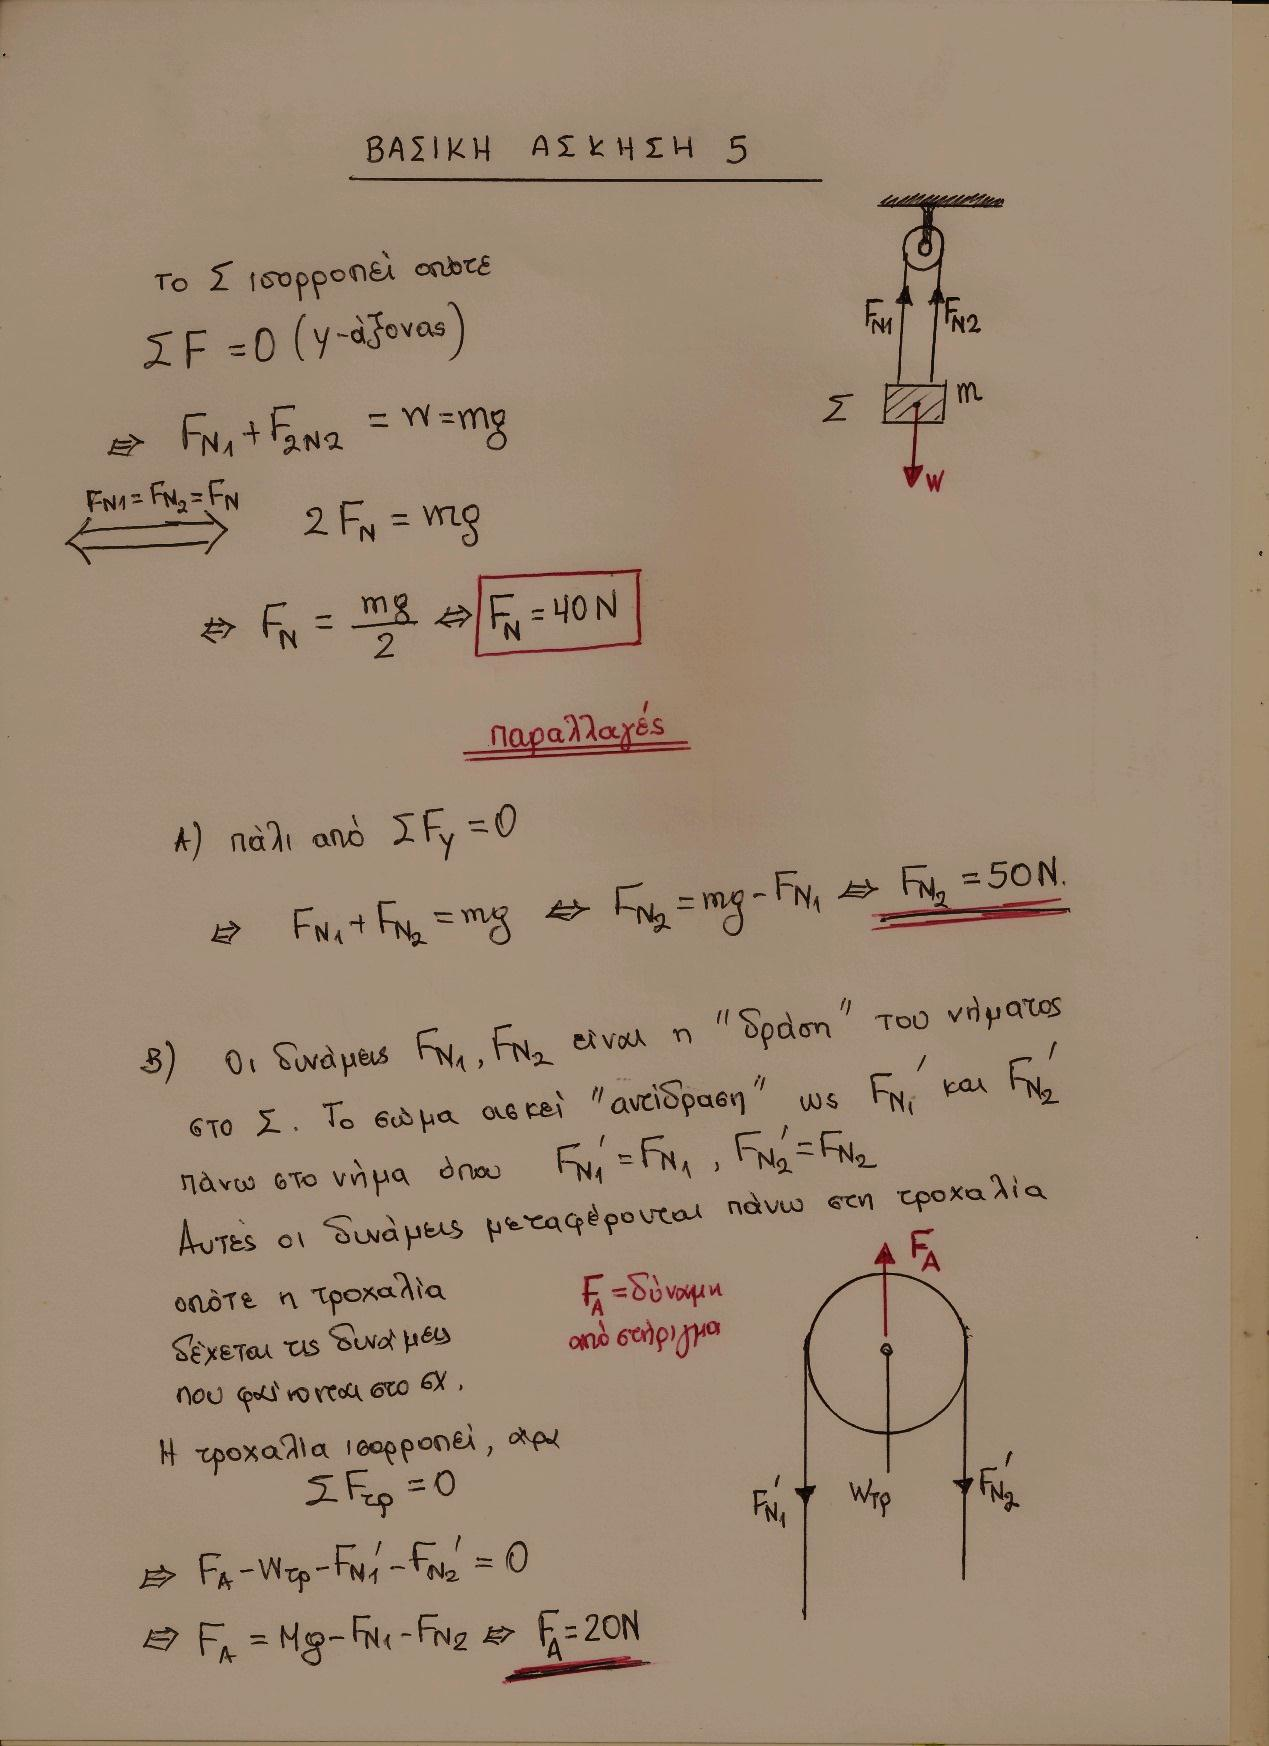 ΒΑΣΙΚΗ ΑΣΚΗΣΗ 5
Το Σ ισορροπεί οπότε
ΣF = 0 (y-άξονας)
⇔ FN1 + F2N2 = W = mg
FN1 = FN2 = FN
⇔ 2FN = mg
⇔ FN = mg/2 ⇔ FN = 40N
FN1 FN2
Σ m
W
παραλλαγές
A) πάλι από ΣFy = 0
⇔ FN1 + FN2 = mg ⇔ FN2 = mg - FN1 ⇔ FN2 = 50N.
B) Οι δυνάμεις FN1, FN2 είναι η "δράση" του νήματος
στο Σ. Το σώμα ασκεί "αντίδραση" ως FN1' και FN2'
πάνω στο νήμα όπου FN1' = FN1, FN2' = FN2
Αυτές οι δυνάμεις μεταφέρονται πάνω στη τροχαλία
οπότε η τροχαλία
δέχεται τις δυνάμεις
που φαίνονται στο σχ.
FA = δύναμη
από στήριγμα
FA
FN1' Wτρ FN2'
Η τροχαλία ισορροπεί, άρα
ΣFτρ = 0
⇔ FA - Wτρ - FN1' - FN2' = 0
⇔ FA = Mg - FN1 - FN2 ⇔ FA = 20N